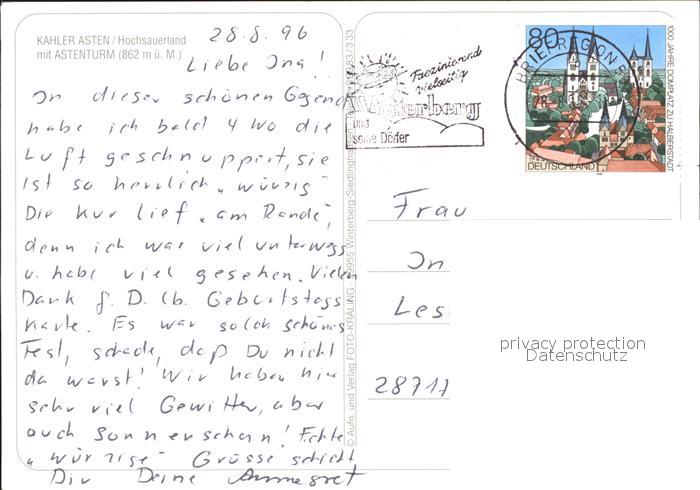 KAHLER ASTEN / Hochsauerland
mit ASTENTURM (862 m ü. M.)
28.8.96
Liebe Ina!
In dieser schönen Gegend
habe ich bald 4 Wo die
Luft geschnuppert, sie
ist so herrlich „würzig"
Die Kur lief „am Rande",
denn ich war viel unterwegs
u. habe viel gesehen. Vielen
Dank f. D. lb. Geburtstags
karte. Es war solch schönes
Fest, schade, daß Du nicht
da warst! Wir haben hier
sehr viel Gewitter, aber
auch Sonnenschein! Echte
„würzige" Grüsse schickt
Dir Deine Annegret
© Aufn. und Verlag FOTO-KRÄLING · 59955 Winterberg-Siedlinghausen
Faszinierend
vielseitig
Winterberg
und
seine Dörfer
BRIEFREGION 5
80
DEUTSCHLAND
1000 JAHRE DOMPLATZ ZU HALBERSTADT
Frau
In
Les
28717
privacy protection
Datenschutz